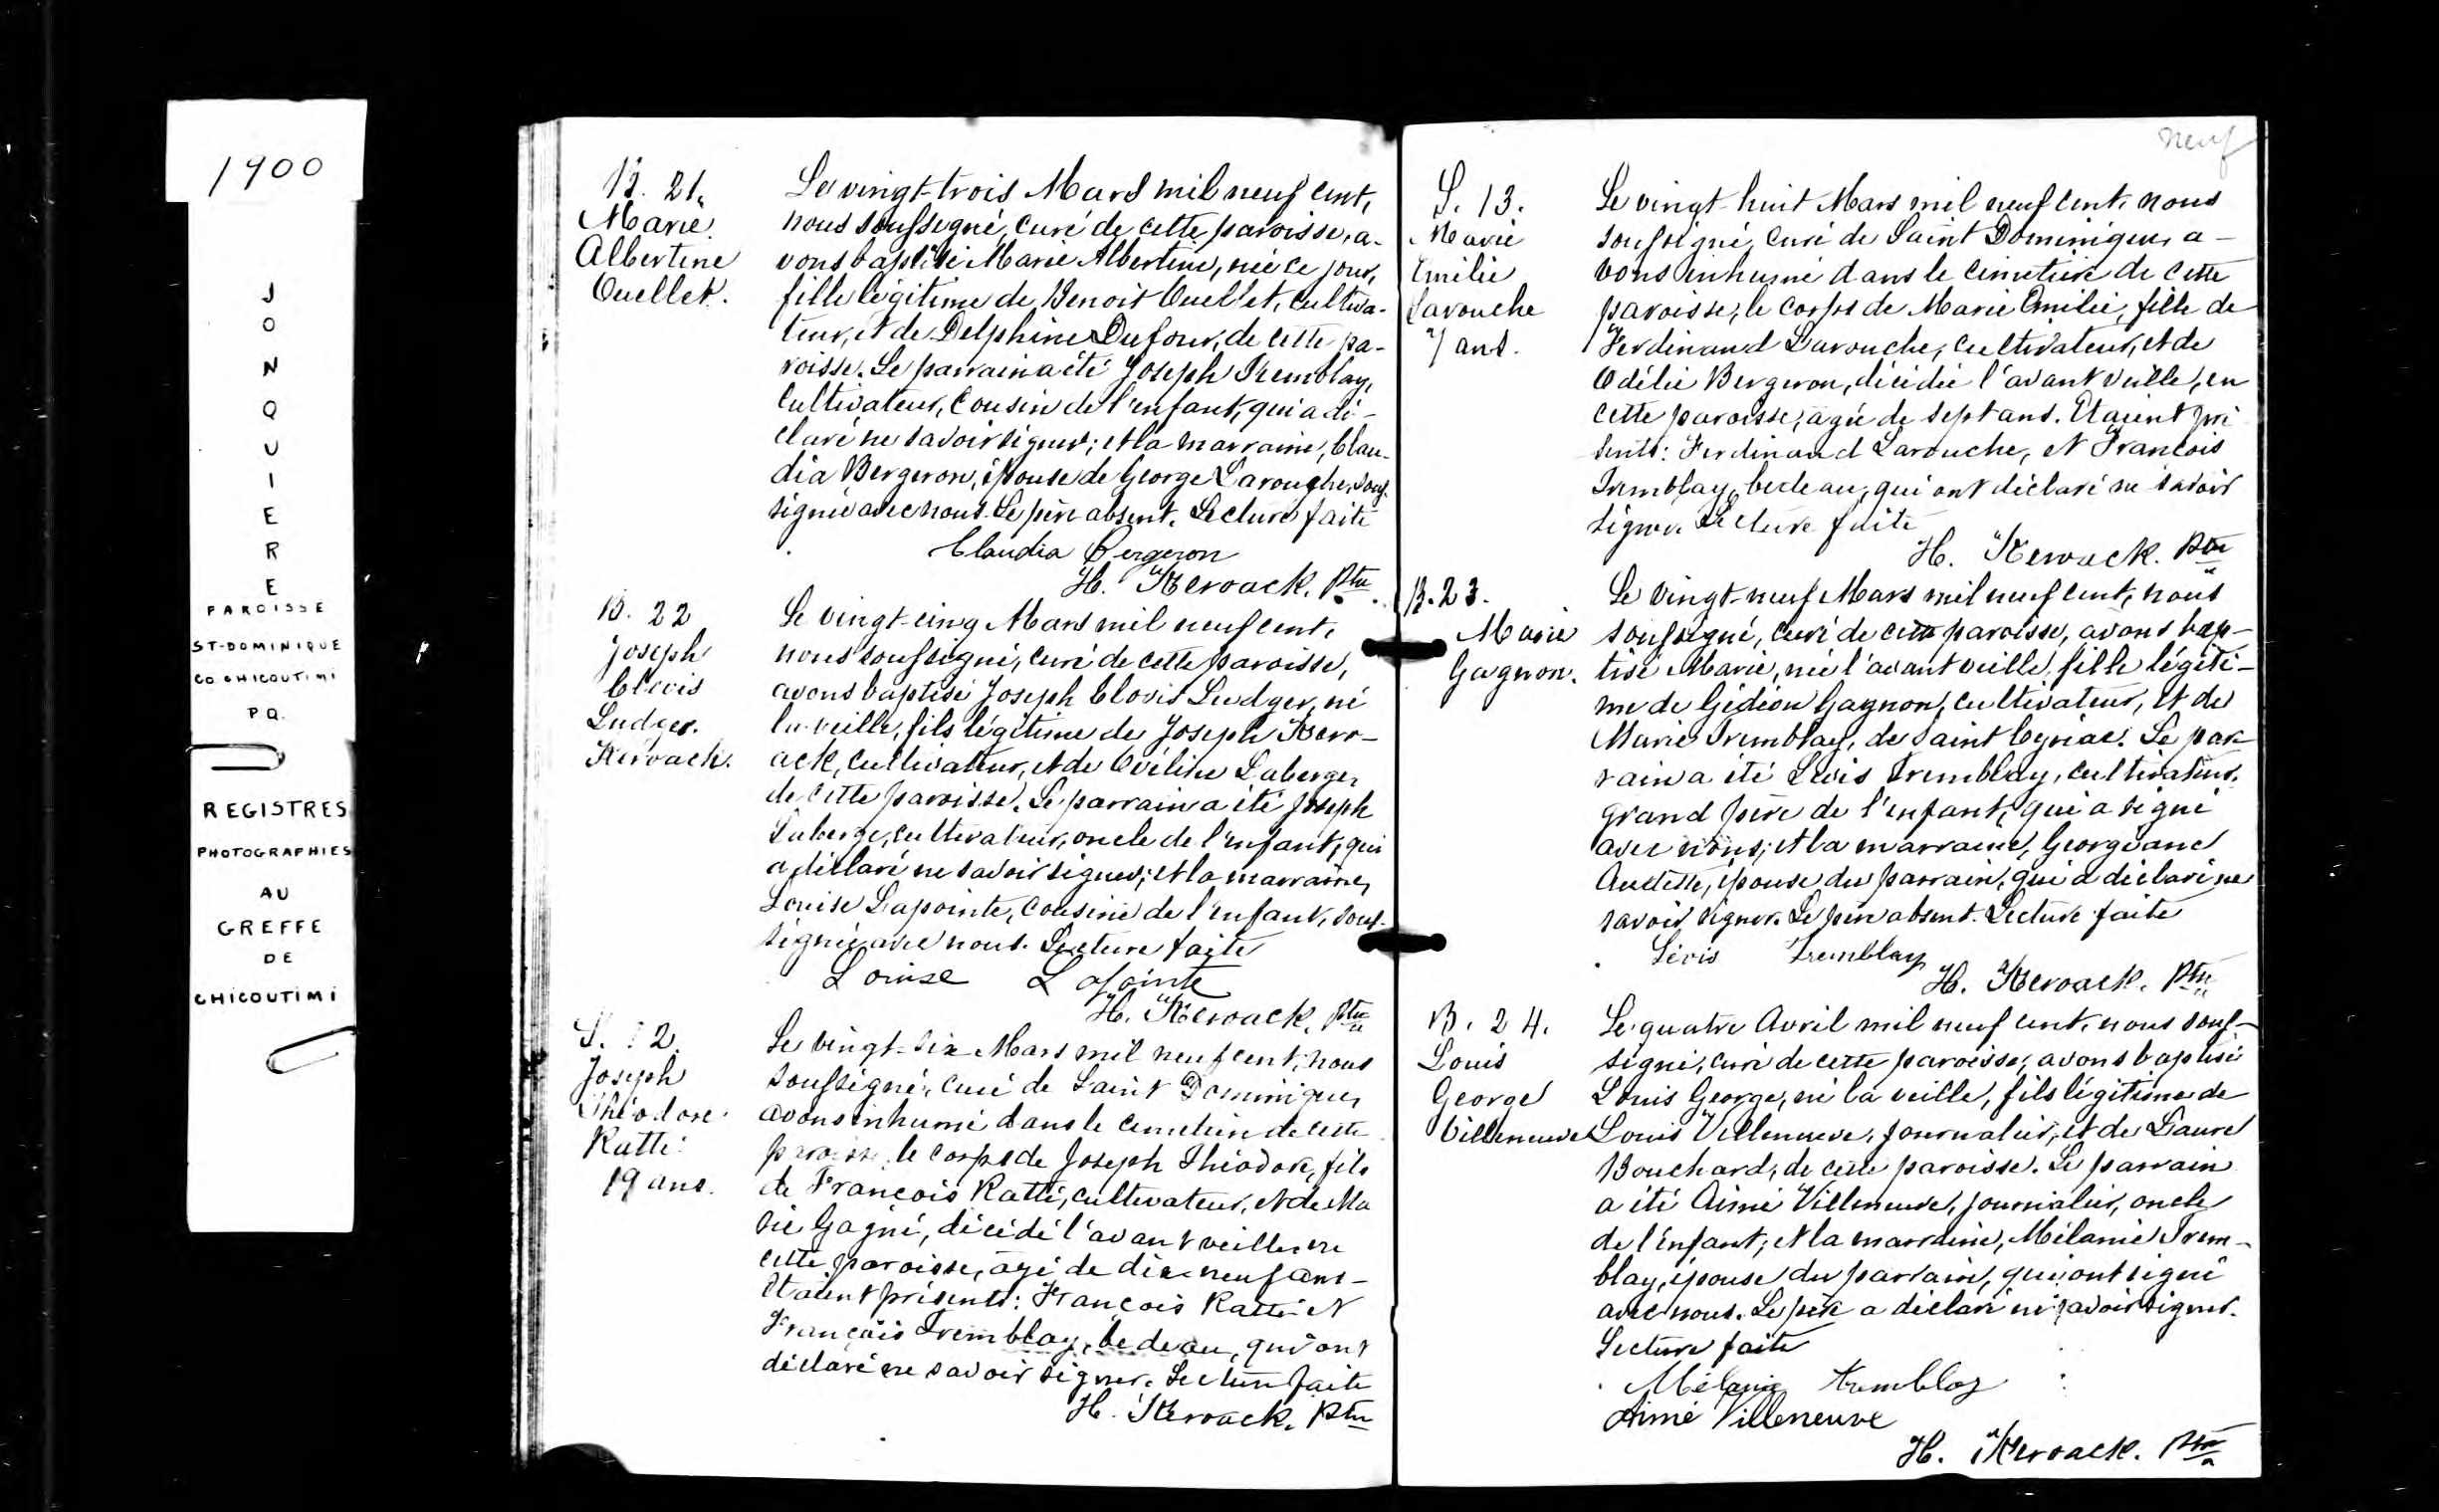 1900
JONQUIERE
PAROISSE
ST-DOMINIQUE
CO CHICOUTIMI
P Q.
REGISTRES
PHOTOGRAPHIES
AU
GREFFE
DE
CHICOUTIMI
B. 21.
Marie
Albertine
Ouellet.
Le vingt-trois Mars mil neuf cent,
nous soussigné, curé de cette paroisse, a-
vons baptisé Marie Albertine, née ce jour,
fille légitime de Benoit Ouellet, cultiva-
teur, et de Delphine Dufour, de cette pa-
roisse. Le parrain a été Joseph Tremblay,
cultivateur, cousin de l'enfant, qui a dé-
claré ne savoir signer; et la marraine, Clau-
dia Bergeron, épouse de George Larouche, sous-
signée avec nous. Le père absent. Lecture faite
Claudia Bergeron
H. Kéroack. Ptre
B. 22
Joseph
Clovis
Ludger.
Kéroack.
Le vingt-cinq Mars mil neuf cent,
nous soussigné, curé de cette paroisse,
avons baptisé Joseph Clovis Ludger, né
la veille, fils légitime de Joseph Kero-
ack, cultivateur, et de Evéline Laberge,
de cette paroisse. Le parrain a été Joseph
Laberge, cultivateur, oncle de l'enfant, qui
a déclaré ne savoir signer; et la marraine,
Louise Lapointe, cousine de l'enfant, sous-
signée avec nous. Lecture faite
Louise Lapointe
H. Kéroack. Ptre
S. 12.
Joseph
Théodore
Ratté
19 ans.
Le vingt-six Mars mil neuf cent, nous
soussigné, curé de Saint Dominique,
avons inhumé dans le cimetière de cette
paroisse, le corps de Joseph Théodore, fils
de François Ratté, cultivateur, et de Ma
rie Gagné, décédé l'avant veille, en
cette paroisse, âgé de dix-neuf ans-
Etaient présents: François Ratté et
François Tremblay, bedeau, qui ont
déclaré ne savoir signer. Lecture faite
H. Kéroack. Ptre
neuf
S. 13.
Marie
Emilie
Larouche
7 ans.
Le vingt-huit Mars mil neuf cent, nous
soussigné, curé de Saint Dominique, a-
vons inhumé dans le cimetière de cette
paroisse, le corps de Marie Emilie, fille de
Ferdinand Larouche, cultivateur, et de
Odélie Bergeron, décédée l'avant veille, en
cette paroisse, âgée de sept ans. Etaient pré
sents: Ferdinand Larouche, et François
Tremblay, bedeau, qui ont déclaré ne savoir
signer. Lecture faite
H. Kéroack. Ptre
B. 23.
Marie
Gagnon.
Le vingt-neuf Mars mil neuf cent, nous
soussigné, curé de cette paroisse, avons bap-
tisé Marie, née l'avant veille, fille légiti-
me de Gédéon Gagnon, cultivateur, et de
Marie Tremblay, de Saint Cyriac. Le par-
rain a été Lévis Tremblay, cultivateur,
grand père de l'enfant, qui a signé
avec nous; et la marraine, Georgeane
Audette, épouse du parrain, qui a déclaré ne
savoir signer. Le père absent. Lecture faite
Lévis Tremblay
H. Kéroack. Ptre
B. 24.
Louis
George
Villeneuve
Le quatre Avril mil neuf cent, nous sous-
signé, curé de cette paroisse, avons baptisé
Louis George, né la veille, fils légitime de
Louis Villeneuve, journalier, et de Laure
Bouchard, de cette paroisse. Le parrain
a été Aimé Villeneuve, journalier, oncle
de l'enfant; et la marraine, Mélanie Trem-
blay, épouse du parrain, qui ont signé
avec nous. Le père a déclaré ne savoir signer.
Lecture faite
Mélanie tremblay
Aimé Villeneuve
H. Kéroack. Ptre